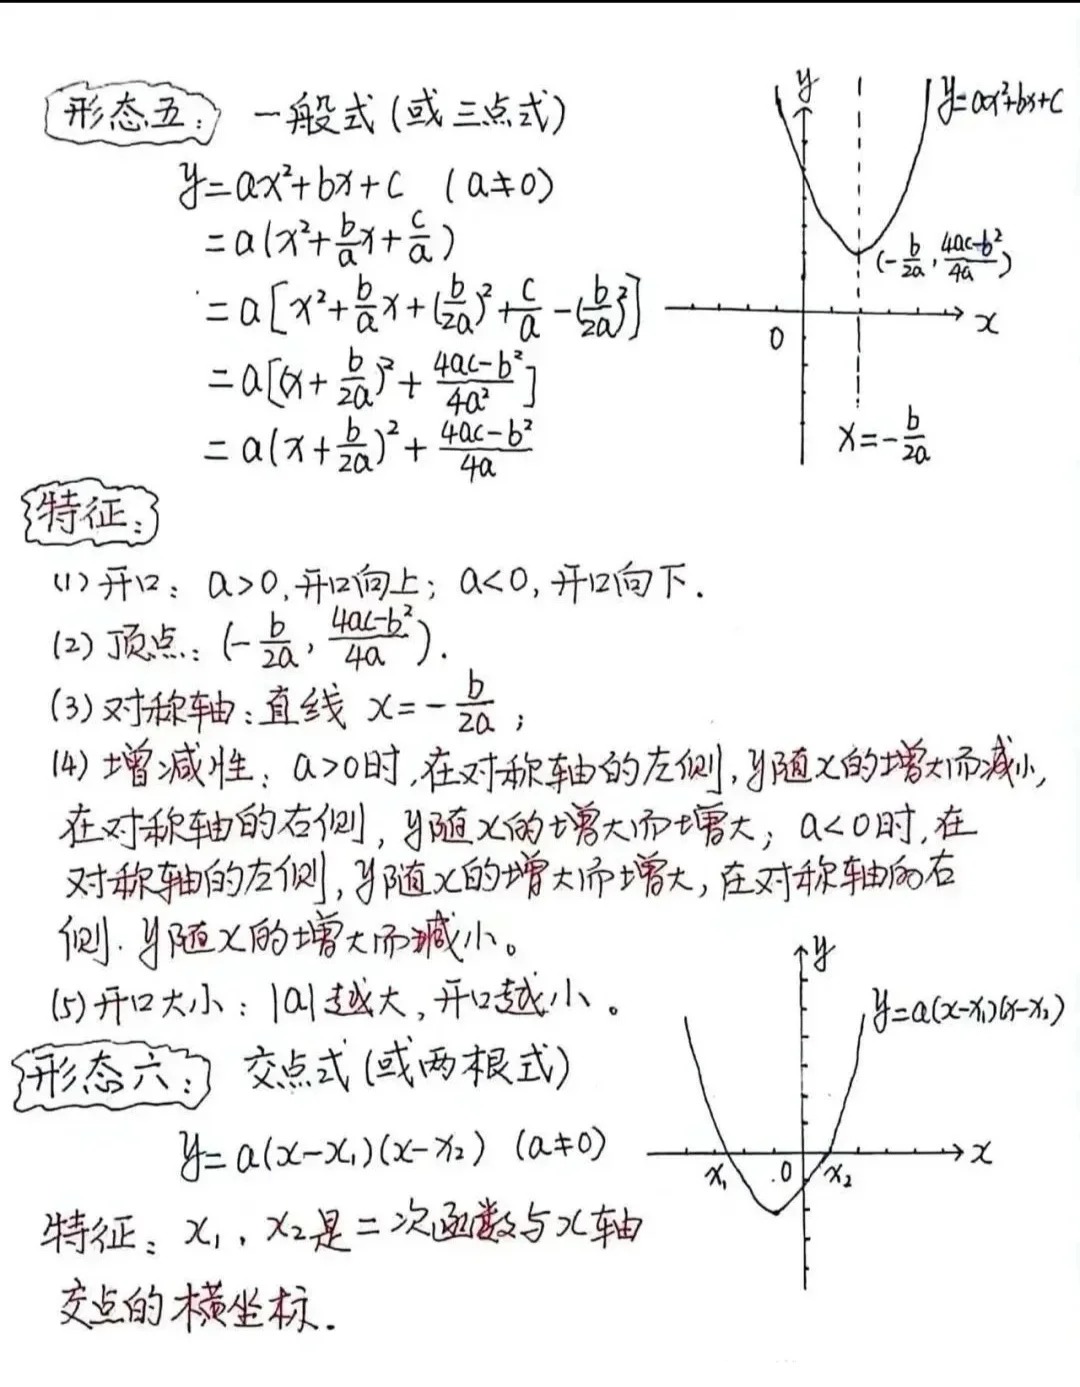 形态五: 一般式(或三点式)
y=ax²+bx+c (a≠0)
=a(x²+b/a x+c/a)
=a[x²+b/a x+(b/2a)²+c/a-(b/2a)²]
=a[(x+b/2a)²+4ac-b²/4a²]
=a(x+b/2a)²+4ac-b²/4a
y
y=ax²+bx+c
(-b/2a, 4ac-b²/4a)
0
x
x=-b/2a
特征:
(1)开口: a>0,开口向上; a<0,开口向下.
(2)顶点: (-b/2a, 4ac-b²/4a).
(3)对称轴:直线 x=-b/2a;
(4)增减性: a>0时,在对称轴的左侧,y随x的增大而减小,
在对称轴的右侧,y随x的增大而增大; a<0时,在
对称轴的左侧,y随x的增大而增大,在对称轴的右
侧.y随x的增大而减小。
(5)开口大小: |a|越大,开口越小。
形态六: 交点式(或两根式)
y=a(x-x₁)(x-x₂) (a≠0)
特征: x₁, x₂是二次函数与x轴
交点的横坐标.
y
y=a(x-x₁)(x-x₂)
x₁
0
x₂
x